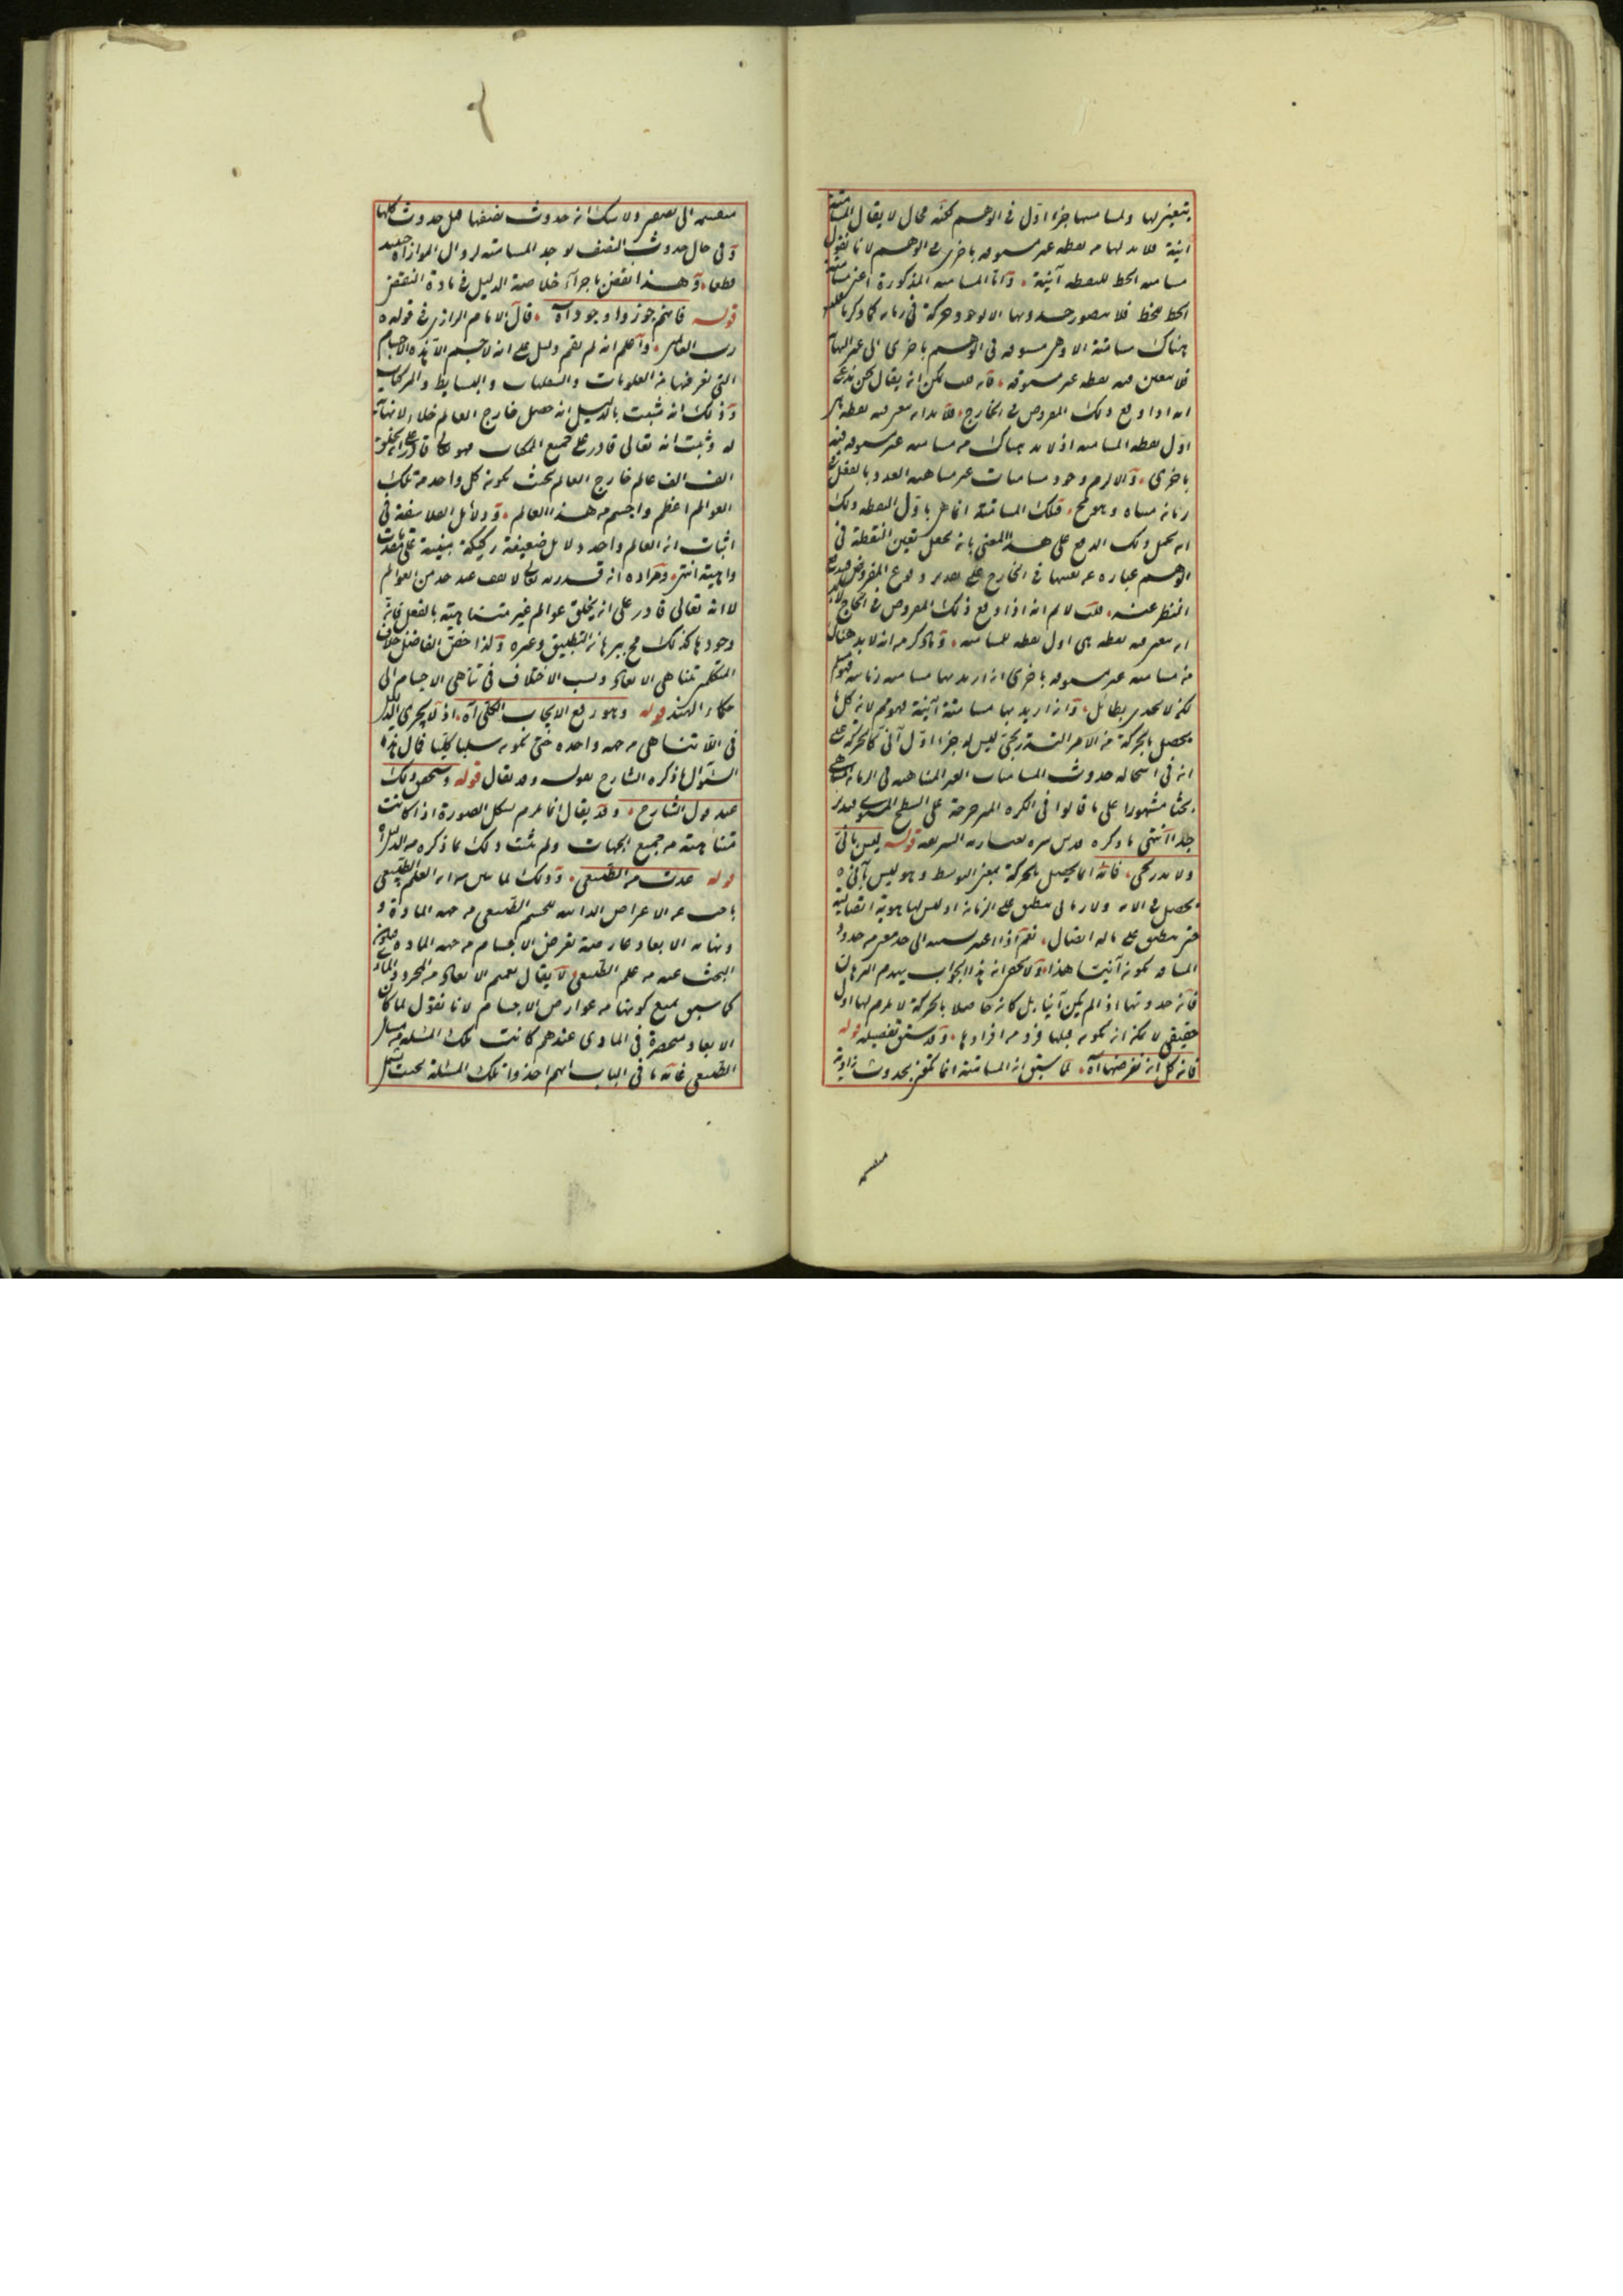 يتعين لها ولمسامتها جزء اول في الوهم لكنه محال لا يقال المسامتة
آنية فلابد لها من نقطة غير مسبوقة باخرى في الوهم لانا نقول
مسامتة الخط للنقطة آنية واما المسامتة المذكورة اعني مسامتة
الخط للخط فلا يتصور حدوثها الا بوجود حركة في زمان كما ذكرنا
هناك مسامتة الا وهي مسبوقة في الوهم باخرى الى غير النهاية
فلا يتعين فيه نقطة غير مسبوقة فان قلت يمكن ان يقال نحن ندعي
انه اذا وقع ذلك المفروض في الخارج فلابد ان يتعين فيه نقطة هي
اول نقطة المسامتة اذ لابد هناك من مسامتة غير مسبوقة فيه
باخرى والا لزم وجود مسامتات غير متناهية العدد بالفعل في
زمان متناه وهو مح فتلك المسامتة انما هي باول النقطة ولك
ان تحمل ذلك الدفع على هذا المعنى بان تجعل تعين النقطة في
الوهم عبارة عن تعينها في الخارج على تقدير وقوع المفروض
قلت لا نم انه اذا وقع ذلك المفروض في الخارج لابد
ان يتعين فيه نقطة هي اول نقطة المسامتة وما ذكر من انه لابد هناك
من مسامتة غير مسبوقة باخرى ان اريد بها مسامتة زمانية فهو مسلم
لكنه لا يجدي بطائل وان اريد بها مسامتة آنية فهو مم لان كل ما
يحصل بالحركة من الامر التدريجي ليس له جزء اول آني كالحركة على
ان في استحالة حدوث المسامتات الغير المتناهية في الزمان المتناهي
بحثا مشهورا على ما قالوا في الكرة المدحرجة على السطح المستوي
جدا انتهى ما ذكره قدس سره بعبارته الشريفة قوله ليس بآني
ولا تدريجي فانه انما يحصل بالحركة بمعنى التوسط وهو ليس بآني
يحصل في الآن ولا زماني منطبق على الزمان اذ ليس لها هوية اتصالية
حتى ينطبق على ماله اتصال نعم اذا اعتبر نسبته الى حد معين من حدود
المسافة يكون آنيا هذا ولا يخفى ان هذا الجواب يهدم البرهان
فان حدوثها اذا لم يكن آنيا بل كان حاصلا بالحركة لا يلزم لها اول
حقيقي لا يمكن ان يكون قبلها فرد من افرادها وقد سبق تفصيله قوله
فان كل ان نفرضها آه لما سبق ان المسامتة انما تتحقق بحدوث زاوية
منقسمة
منقسمة الى نصفين ولا شك ان حدوث نصفها قبل حدوث كلها
وفي حال حدوث النصف لوجد المسامتة لزوال الموازاة حينئذ
قطعا وهذا نقض باجراء خلاصة الدليل في مادة النقض
قوله فانهم جوزوا وجود آه قال الامام الرازي في قوله
رب العالمين واعلم انه لم يقم دليل على انه لا جسم الا هذه الاجسام
التي نعرفها من العلويات والسفليات والبسايط والمركبات
وذلك انه ثبت بالدليل انه حصل خارج العالم خلاء لا نهاية
له وثبت انه تعالى قادر على جميع الممكنات فهو تعالى قادر على ان يخلق
الف الف عالم خارج العالم بحيث يكون كل واحد من تلك
العوالم اعظم واجسم من هذا العالم ودلائل الفلاسفة في
اثبات ان العالم واحد دلايل ضعيفة ركيكة مبنية على مقدمات
واهية انتهى ومراده ان قدرته تعالى لا تقف عند حد من العوالم
لا انه تعالى قادر على ان يخلق عوالم غير متناهية بالفعل فان
وجودها كذلك مح ببرهان التطبيق وغيره ولذا خص الفاضل خلاف
المتكلمين تناهي الابعاد ونسب الاختلاف في تناهي الاجسام الى
حكماء الهند قوله وهو رفع الايجاب الكلي آه اذ لا يجري الدليل
في اللاتناهي من جهة واحدة حتى يكون سلبا كليا قال هذا
السؤال ما ذكره الشارح بقوله وقد يقال قوله وسيتحقق ذلك
عند قول الشارح وقد يقال انما يلزم لشكل الصورة اذا كانت
متناهية من جميع الجهات ولم يثبت ذلك بما ذكره من الدليل
قوله عدت من الطبيعي وذلك لما بين من ان العلم الطبيعي
باحث عن الاعراض الذاتية للجسم الطبيعي من جهة المادة و
تناهي الابعاد عارضة تعرض الاجسام من جهة المادة فيكون
البحث عنه من علم الطبيعي لا يقال تعميم الابعاد من المجرد والمادي
كما سبق يمنع كونها من عوارض الاجسام لانا نقول لما كان
الابعاد منحصرة في المادي عندهم كانت تلك المسئلة من مسائل
الطبيعي غاية ما في الباب انهم اخذوا تلك المسئلة بحيث يشمل